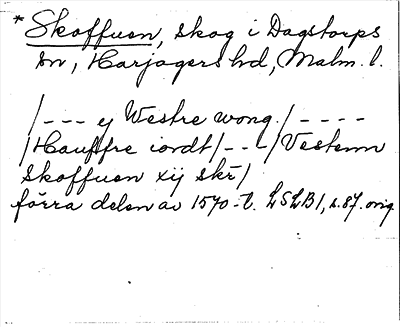 * Skoffuen, skog i Dagstorps
sn, Harjagers hd, Malm. l.
/--- ej Westre wong. /----
/Hauffre iordt/---/Vestenn
Skoffuen xij skr̄/
förra delen av 1570-t. LSLB1, s. 87. orig.